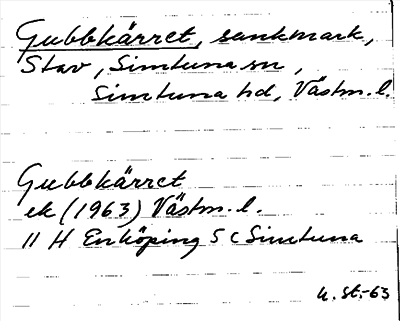 Gubbkärret, sankmark,
Stav, Simtuna sn,
Simtuna hd, Västm. l.
Gubbkärret
ek (1963) Västm. l.
11 H Enköping 5 c Simtuna
u. st.-63